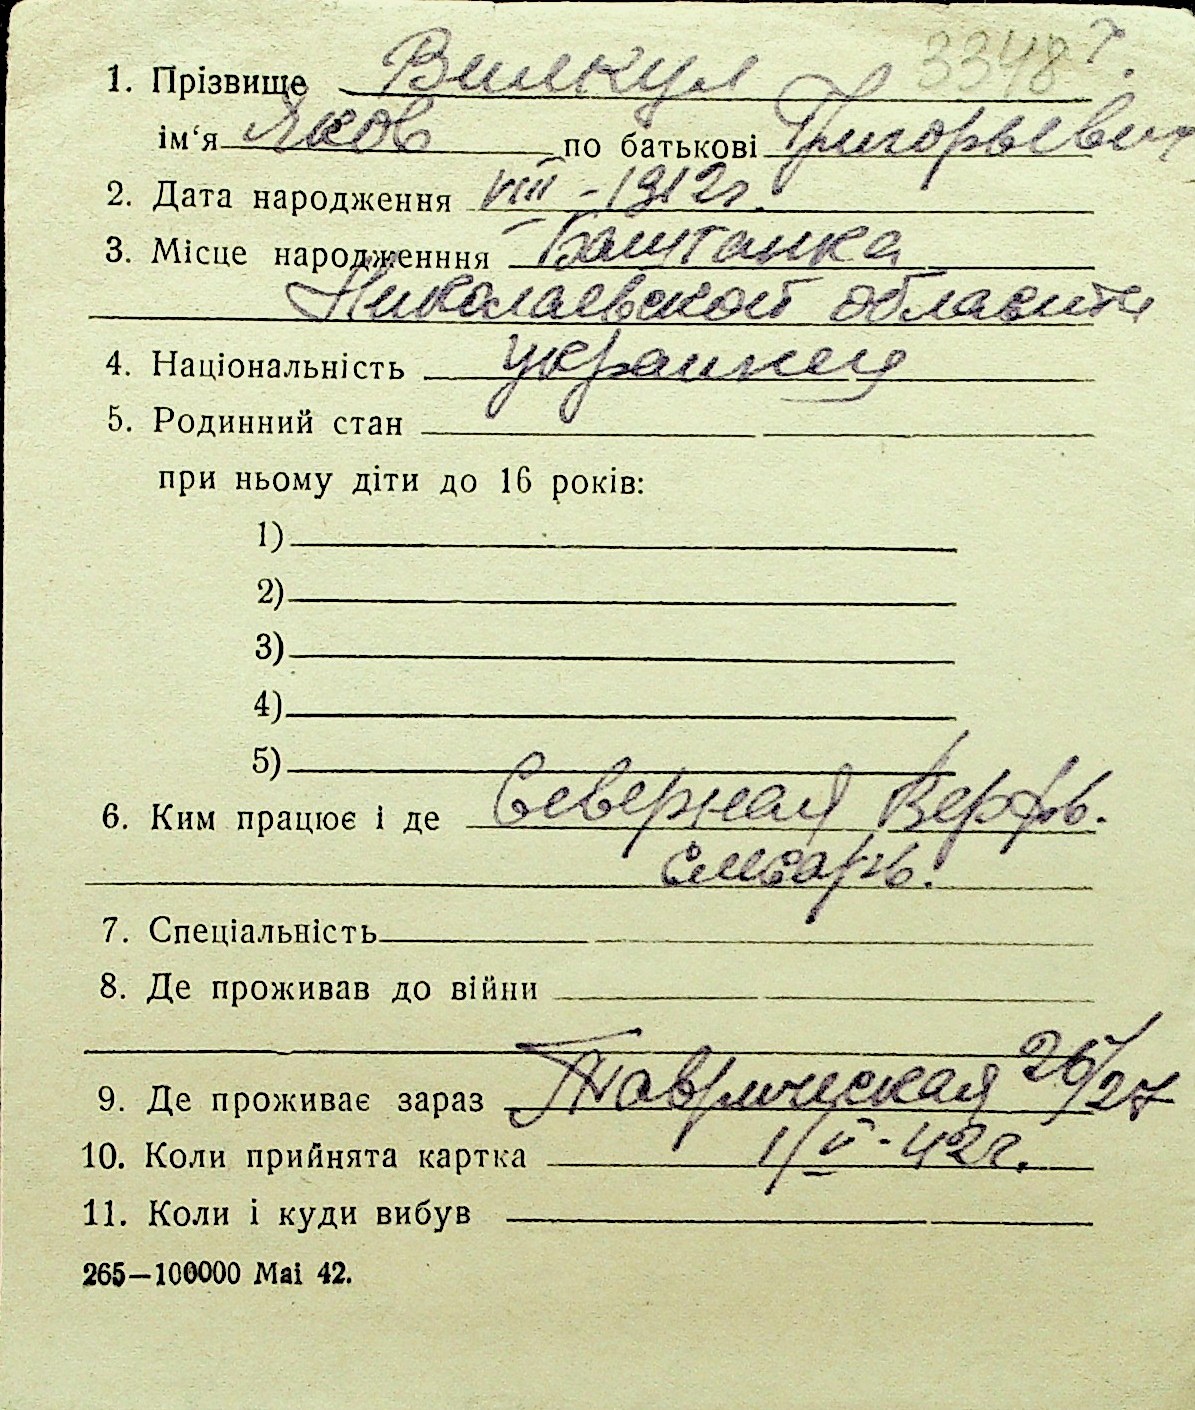 3348 г.
1. Прізвище Вилкул
ім‘я Яков по батькові Григорьевич
2. Дата народження VIII - 1912г.
3. Місце народженння Баштанка
Николаевской области
4. Національність украинец
5. Родинний стан
при ньому діти до 16 років:
1)
2)
3)
4)
5)
6. Ким працює і де Северная Верфь.
слесарь.
7. Спеціальність
8. Де проживав до війни
9. Де проживає зараз Таврическая 26/27
10. Коли прийнята картка 1/V - 42г.
11. Коли і куди вибув
265—100000 Mai 42.